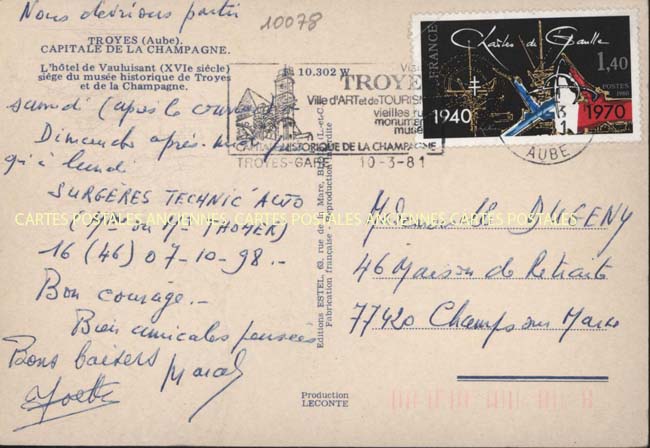 Nous devrions partir
10078
TROYES (Aube).
CAPITALE DE LA CHAMPAGNE.
L'hôtel de Vauluisant (XVIe siècle)
siège du musée historique de Troyes
et de la Champagne.
10.302 W
samedi (après le courrier)
Dimanche après-midi
qu'à lundi
SURGÈRES TECHNIC AUTO
(Mr ou Me THOMER)
16 (46) 07-10-98 -
Bon courage.-
Bien amicales pensées
Bons baisers Marcel
Yvette
CARTES POSTALES ANCIENNES CARTES POSTALES ANCIENNES CARTES POSTALES
TROYES
Ville d'ART et de TOURISM
vieilles
monument
musé
HISTORIQUE DE LA CHAMPAGNE
TROYES-GARE 10-3-81
AUBE
FRANCE
Charles de Gaulle
1,40
POSTES 1980
1940
1970
Editions ESTEL, 63, rue de la Mare,
Fabrication française - Reproduction interdite
DUGENY
46 Maison de Retraite
77420 Champs sur Marne
Production
LECONTE